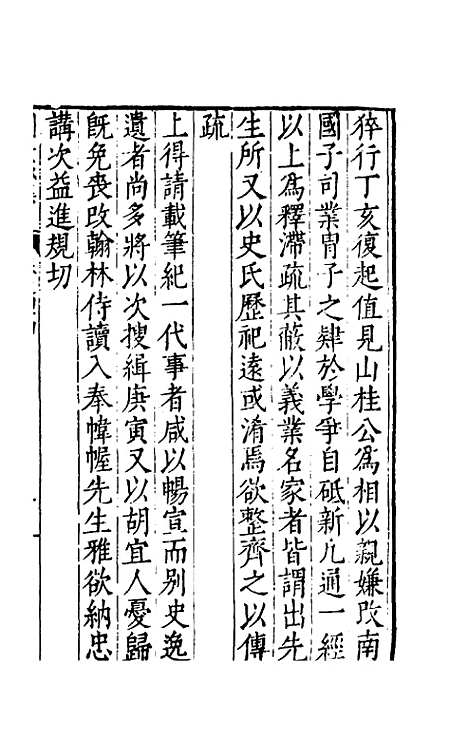 猝行丁亥復起值見山桂公爲相以親嫌改南
國子司業胄子之肄於學爭自砥新凡通一經
以上爲釋滯疏其蔽以義業名家者皆謂出先
生所又以史氏歷祀遠或淆焉欲整齊之以傳
疏
上得請載筆紀一代事者咸以暢宣而別史逸
遺者尚多將以次搜緝庚寅又以胡宜人憂歸
旣免喪改翰林侍讀入奉幃幄先生雅欲納忠
講次益進規切